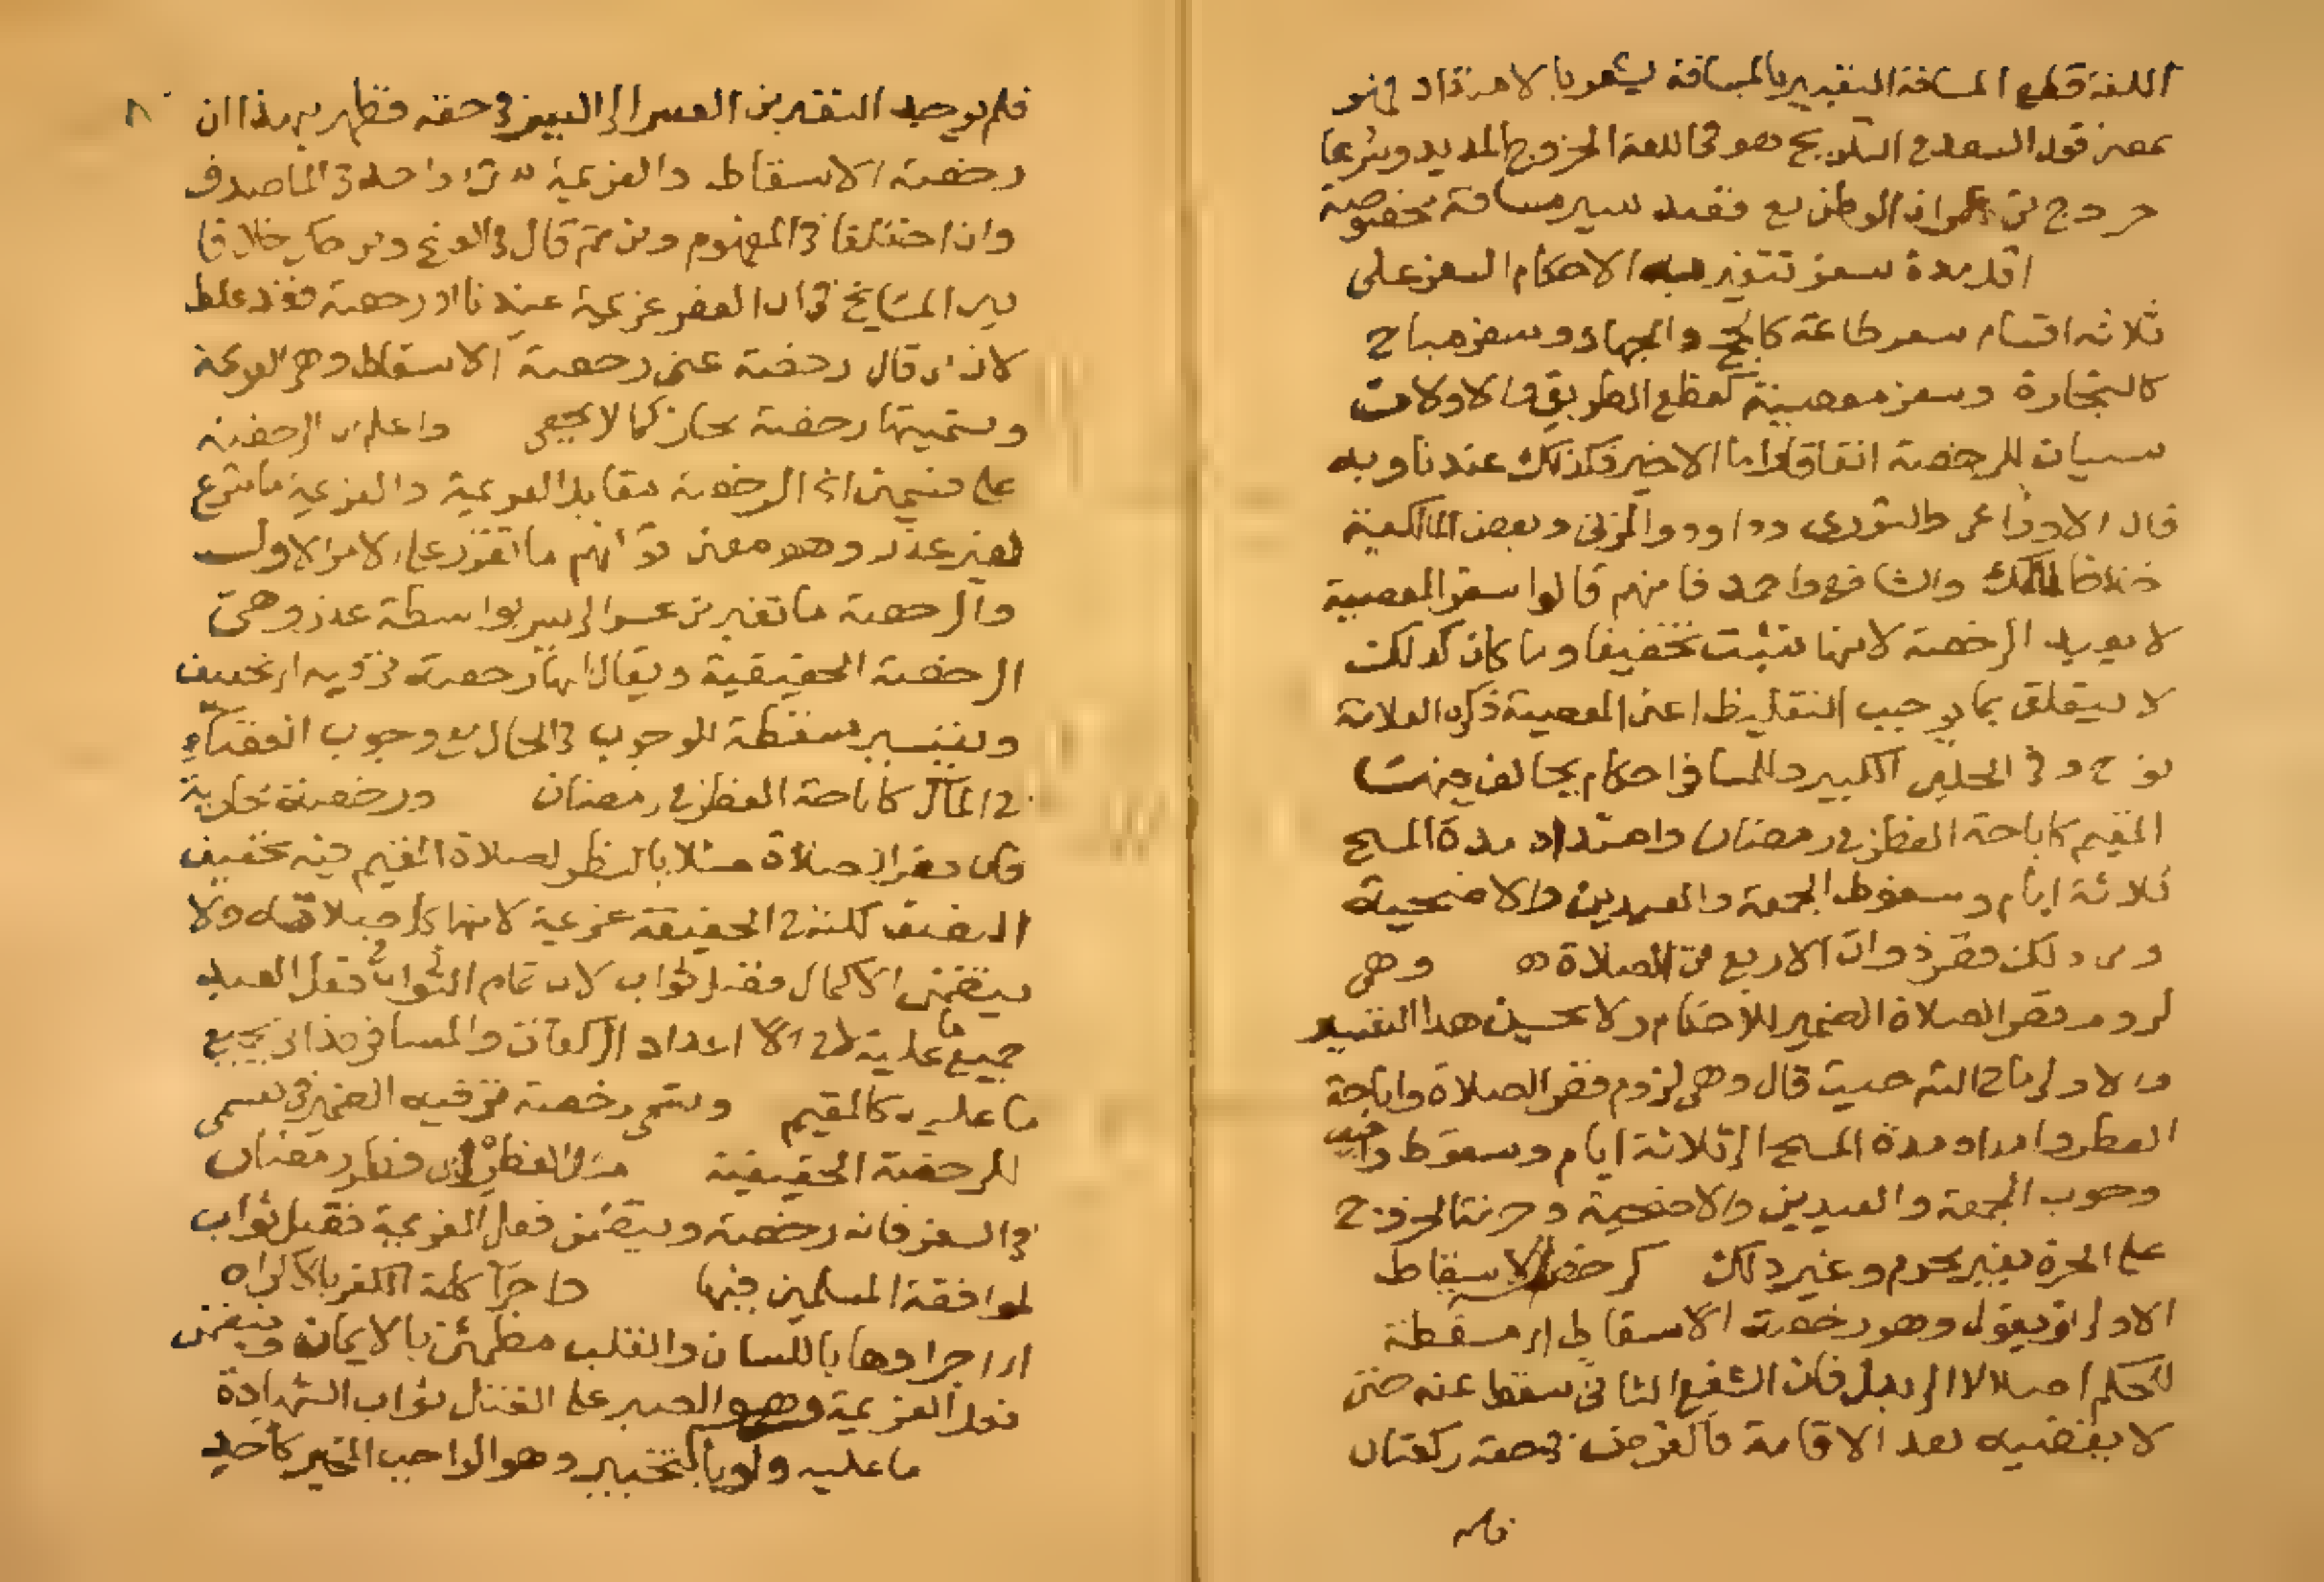 اللغة قطع المسافة التقييد بالمسافة يشعر بالامتداد فهو
بمعنى قول السعد في التلويح هو في اللغة الخروج المديد وشرعا
خروج من عمران الوطن مع قصد سير مسافة مخصوصة
اقل مدة سفر تتغير به الاحكام السفر على
ثلاثة اقسام سفر طاعة كالحج والجهاد وسفر مباح
كالتجارة وسفر معصية كقطع الطريق فالاولان
سببان للرخصة اتفاقا واما الاخير فكذلك عندنا وبه
قال الاوزاعي والثوري وداود والمزني وبعض المالكية
خلافا لمالك والشافعي واحمد فانهم قالوا سفر المعصية
لا يفيد الرخصة لانها تثبت تخفيفا وما كان كذلك
لا يتعلق بما يوجب التغليظ اعني المعصية ذكره العلامة
نوح وفي الحلبي الكبير وللمسافر احكام يخالف فيها
المقيم كاباحة الفطر في رمضان وامتداد مدة المسح
ثلاثة ايام وسقوط الجمعة والعيدين والاضحية
ومن ذلك قصر ذوات الاربع من الصلاة وهي
لزوم قصر الصلاة الضمير للاحكام ولا يحسن هذا التقييد
فالاولى ما في النهر حيث قال وهي لزوم قصر الصلاة واباحة
الفطر وامداد مدة المسح الى ثلاثة ايام وسقوط
وجوب الجمعة والعيدين والاضحية وحرمة الخروج
على الحرة بغير محرم وغير ذلك كرخصة الاسقاط
الاولى ان يقول وهو رخصة الاسقاط اي مسقطة
للحكم اصلا لا الى بدل فان الشفع الثاني سقط عنه حتى
لا يقضيه بعد الاقامة فالفرض في حقه ركعتان
فلم
٨
فلم يوجد التغير من العسر الى اليسر في حقه فظهر بهذا ان
رخصة الاسقاط والعزيمة شيء واحد في الماصدق
وان اختلفا في المفهوم ومن ثم قال في الفتح ومن حكى خلافا
بين المشايخ في ان القصر عزيمة عندنا او رخصة فقد غلط
لان من قال رخصة عنى رخصة الاسقاط وهي العزيمة
وتسميتها رخصة مجاز كما لا يخفى واعلم ان الرخصة
على قسمين اذ الرخصة تقابل العزيمة والعزيمة ما شرع
لغير عذر وهو معنى قولهم ما تقرر على الامر الاول
والرخصة ما تغير من عسر الى يسر بواسطة عذر وهي
الرخصة الحقيقية ويقال لها رخصة ترفيه اي تخفيف
وتيسير مسقطة للوجوب في الحال مع وجوب القضاء
في المآل كاباحة الفطر في رمضان ورخصة مجازية
فان قصر الصلاة مثلا بالنظر لصلاة المقيم فيه تخفيف
النصف لكنه في الحقيقة عزيمة لانها كل صلاته ولا
يتضمن الاكمال فضل ثواب لان تمام الثواب في فعل العبد
جميع ما عليه لا في اعداد الركعات والمسافر قد اتى بجميع
ما عليه كالمقيم وتسمى رخصة ترفيه الضمير في تسمى
للرخصة الحقيقية مثل الفطر اي فطر رمضان
في السفر فانه رخصة ويتضمن فعل العزيمة فضل ثواب
لموافقة المسلمين فيها واجراء كلمة الكفر بالاكراه
اي اجراؤها باللسان والقلب مطمئن بالايمان ويتضمن
فعل العزيمة وهو الصبر على القتل ثواب الشهادة
ما عليه ولو بالتخيير وهو الواجب المخير كاحد